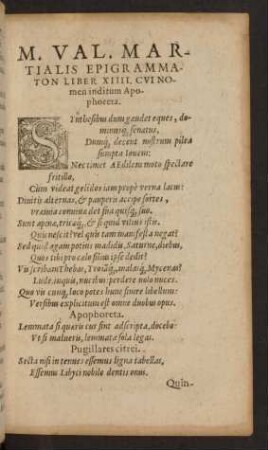 M. VAL. MAR-
TIALIS EPIGRAMMA-
TON LIBER XIIII. CVI NO-
men inditum Apo-
phoreta.
SYnthesibus dum gaudet eques, do-
minusq́; senatus,
Dumq́; decent nostrum pilea
sumpta Iouem:
Nec timet Aedilem moto spectare
fritillo,
Cùm videat gelidos iam propè verna lacus:
Diuitis alternas, & pauperis accipe sortes,
Præmia conuiuæ det sua quisq́; suo.
Sunt apinæ, tricæq́;, & si quid vilius istis.
Quis nescit? vel quis tam manifesta negat?
Sed quid agam potius madidis, Saturne, diebus,
Quos tibi pro cælo filius ipse dedit?
Vis scribam Thebas, Troiāq́;, malasq́; Mycenas?
Lude, inquis, nucibus: perdere nolo nuces.
Quo vis cunq; loco potes hunc finire libellum:
Versibus explicitum est omne duobus opus.
Apophoreta.
Lemmata si quæris cur sint adscripta, docebo:
Vt si malueris, lemmata sola legas.
Pugillares citrei.
Secta nisi in tenues essemus ligna tabellas,
Essemus Libyci nobile dentis onus.
Quin-